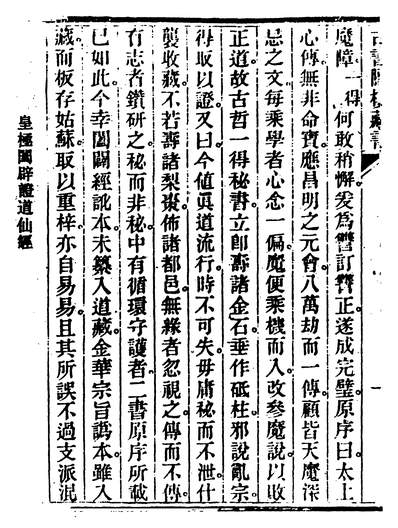 魔障一得何敢稍懈爰爲讐訂讐正遂成完璧原序曰太上
心傳無非命寶應昌明之元會八萬劫而一傳顧皆天魔深
忌之文每乘學者心念一偏魔便乘機而入改參魔說以敗
正道故古哲一得秘書立卽壽諸金石垂作砥柱邪說亂宗
得取以證又曰今値眞道流行時不可失毋庸秘而不泄什
襲收藏不若壽諸梨棗佈諸都邑無緣者忽視之傳而不傳
有志者鑽研之秘而非秘中有循環守護者二書原序所載
已如此今幸闔闢經訛本未纂入道藏金華宗旨譌本雖入
藏而板存姑蘇取以重梓亦自易易且其所誤不過支派混
皇極闔辟證道仙經